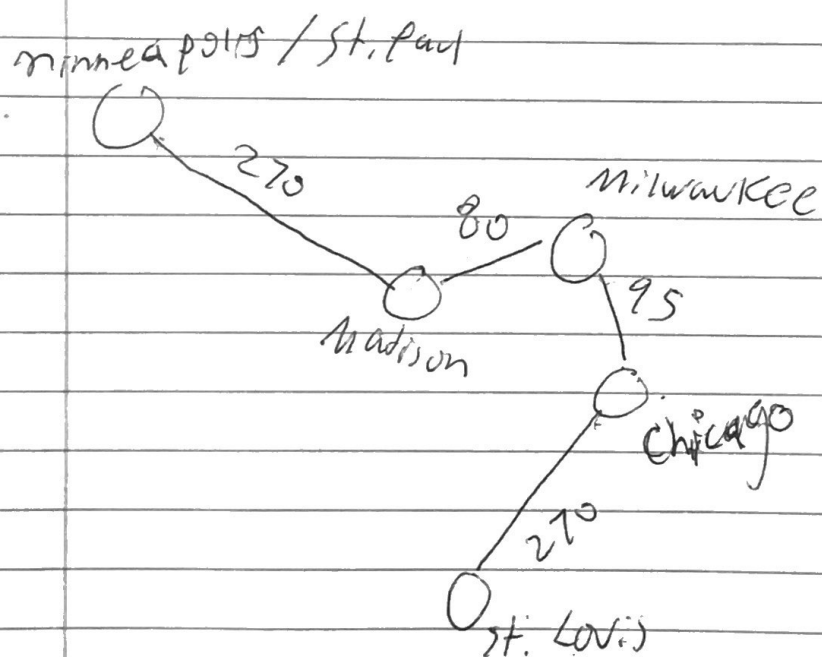 Minneapolis / St. Paul
270
Milwaukee
80
95
Madison
Chicago
270
St. Louis